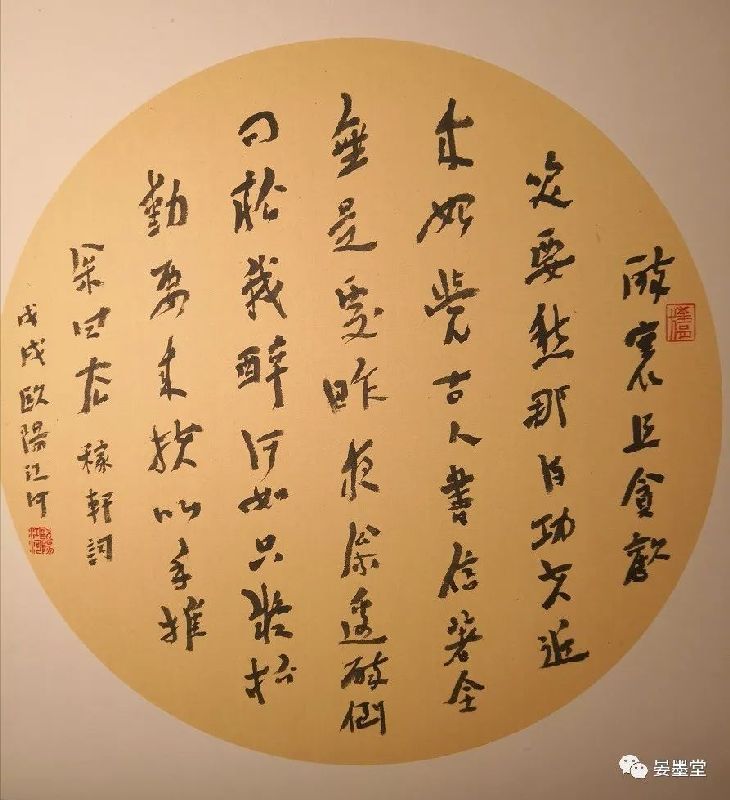 醉裏且貪歡
笑要愁那得功夫近
来始覺古人書信著全
無是處昨夜松邊醉倒
问松我醉何如只疑松
動要来扶以手推
松曰去 稼軒詞
戊戌歐陽江河
晏墨堂